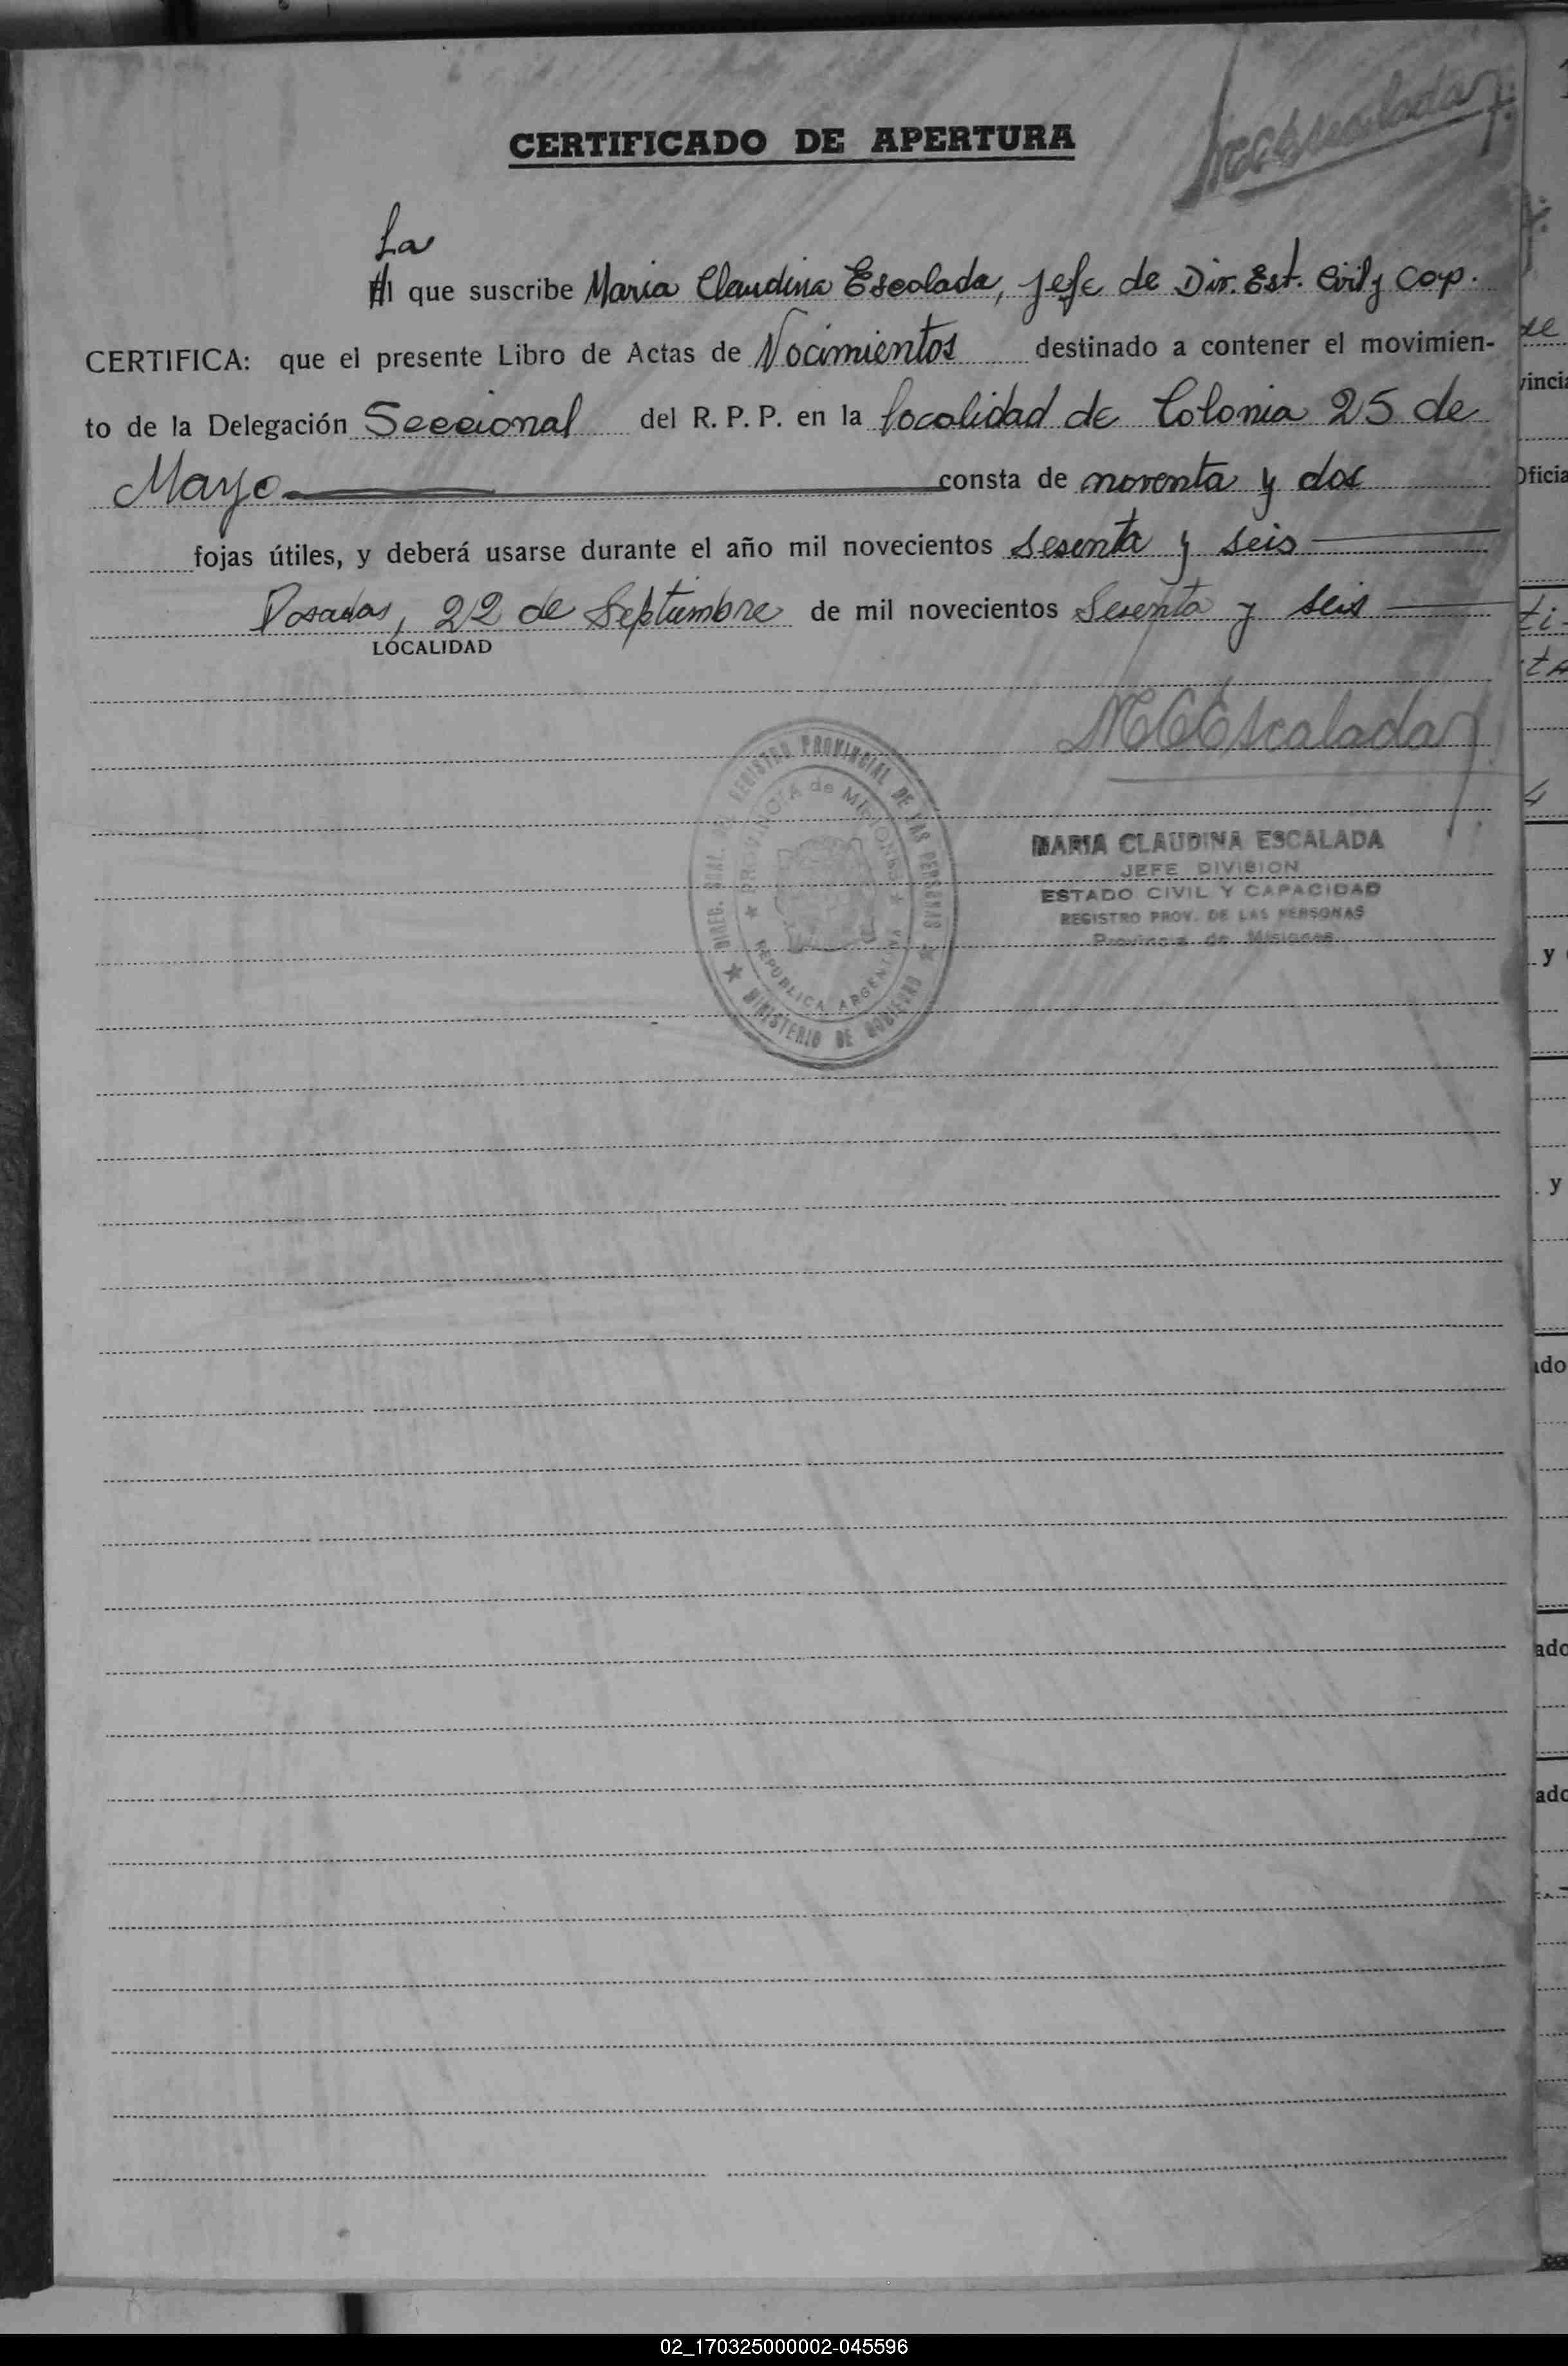 MCEscalada
CERTIFICADO DE APERTURA
La
El que suscribe Maria Claudina Escalada, jefe de Div. Est. Civil y Cap.
CERTIFICA: que el presente Libro de Actas de Nacimientos destinado a contener el movimien-
to de la Delegación Seccional del R. P. P. en la localidad de Colonia 25 de
Mayo consta de noventa y dos
fojas útiles, y deberá usarse durante el año mil novecientos sesenta y seis
Posadas, 22 de Septiembre de mil novecientos Sesenta y seis
LOCALIDAD
MCEscalada
DIREC. GRAL. REGISTRO PROVINCIAL DE LAS PERSONAS
PROVINCIA de MISIONES
REPUBLICA ARGENTINA
MINISTERIO DE GOBIERNO
MARIA CLAUDINA ESCALADA
JEFE DIVISION
ESTADO CIVIL Y CAPACIDAD
REGISTRO PROV. DE LAS PERSONAS
Provincia de Misiones
02_170325000002-045596